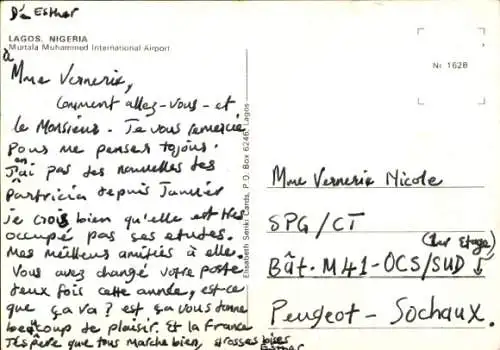 D'e Esther
LAGOS, NIGERIA
Murtala Muhammed International Airport
à
Mme Vernerix,
Comment allez-vous-et
le Monsieur. Je vous remercie
Pour me penser tojours.
J'ai pas des nouvelles des
Partricia depuis Janvier
je crois bien qu'elle est très
occupé pas ses etudes.
Mes meilleurs amitiés à elle.
Vous avez changé votre poste
deux fois cette année, est-ce
que ça va? est ça vous donne
beaucoup de plaisir. Et la France
J'espère que tous marche bien, grosses bises
Esther
Elisabeth Seriki Cards, P.O. Box 6246, Lagos
Nr. 162B
Mme Vernerix Nicole
SPG/CT
(1er Etage)
Bât. M41-OCS/SUD
Peugeot - Sochaux.